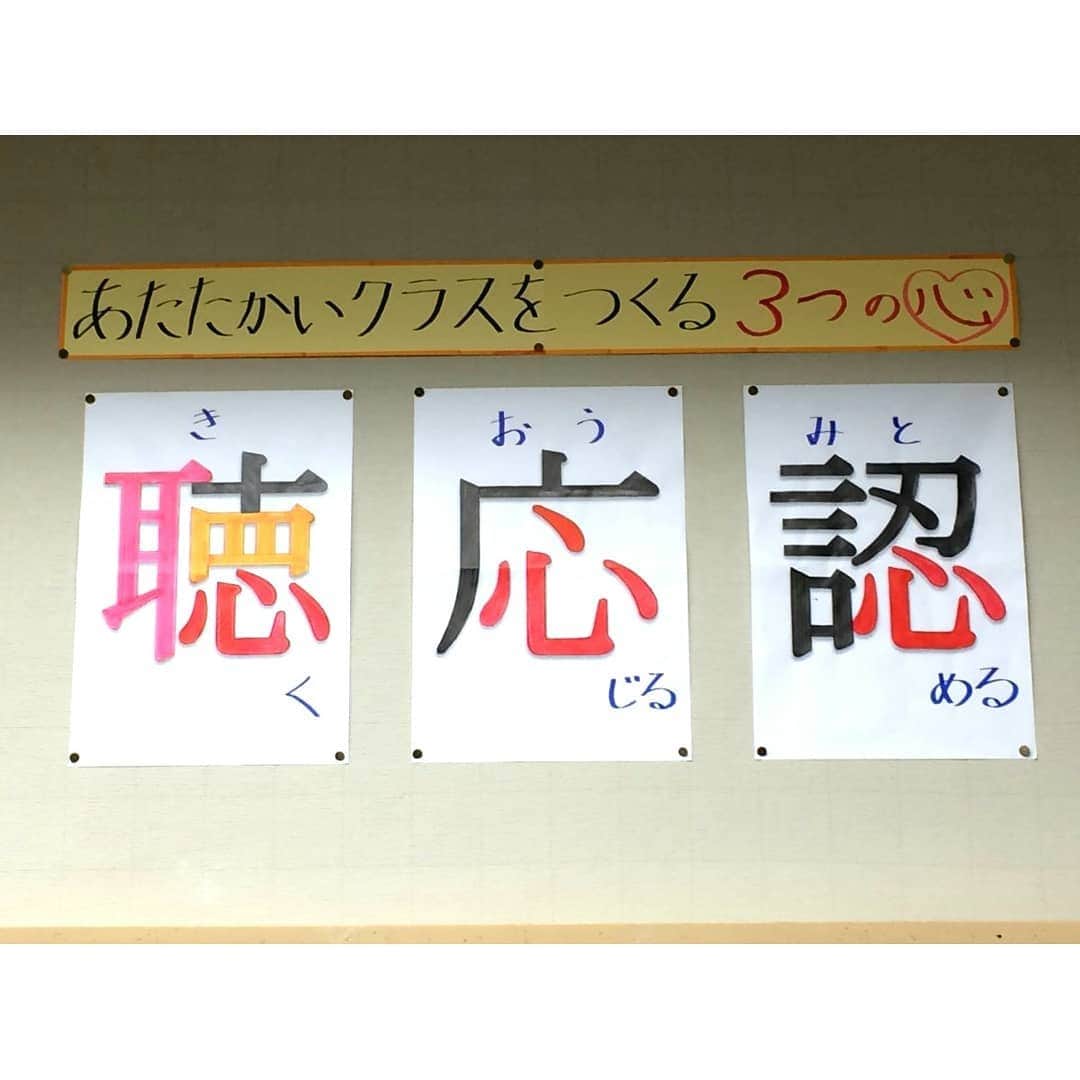 あたたかいクラスをつくる3つの心
き
聴
く
おう
応
じる
みと
認
める